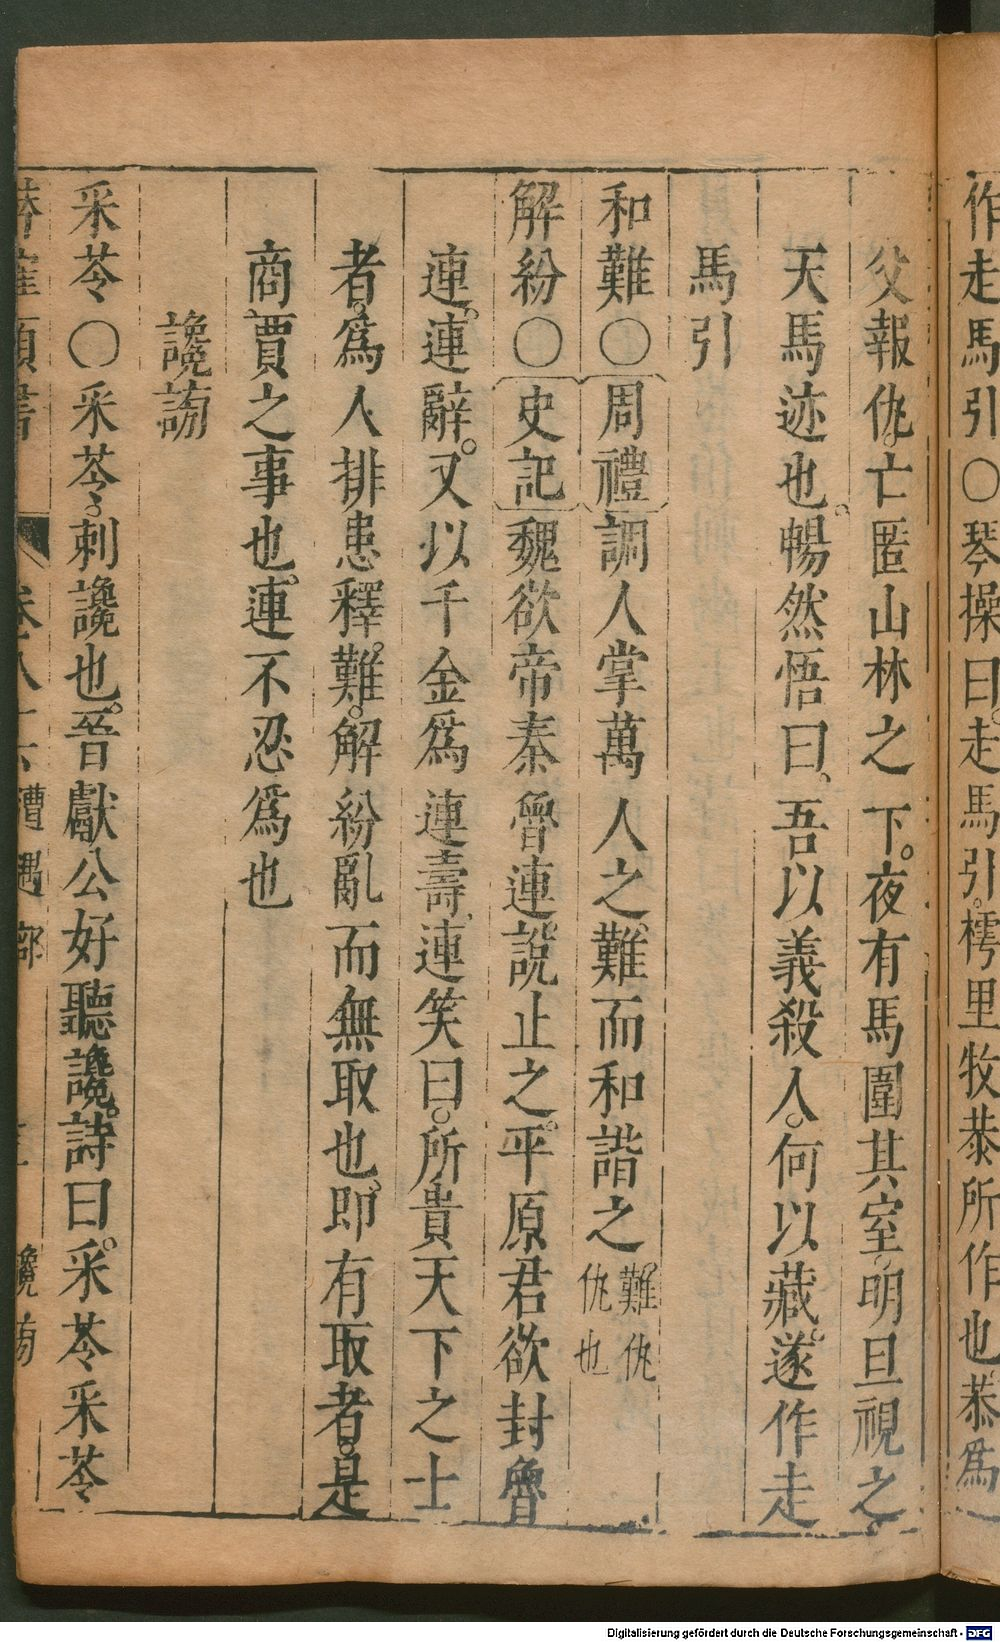 作走馬引〇琴操曰走馬引樗里牧恭所作也恭爲
父報仇亡匿山林之下夜有馬圍其室明旦視之
天馬迹也暢然悟曰吾以義殺人何以藏遂作走
馬引
和難〇周禮調人掌萬人之難而和諧之難仇仇也
解紛〇史記魏欲帝秦曾連說止之平原君欲封魯
連連辭又以千金爲連壽連笑曰所貴天下之士
者爲人排患釋難解紛亂而無取也即有取者是
商賈之事也連不忍爲也
讒謗
采苓〇采苓刺讒也晉獻公好聽讒詩曰采苓采苓
卷八十六遭遇部 讒謗
Digitalisierung gefördert durch die Deutsche Forschungsgemeinschaft - DFG